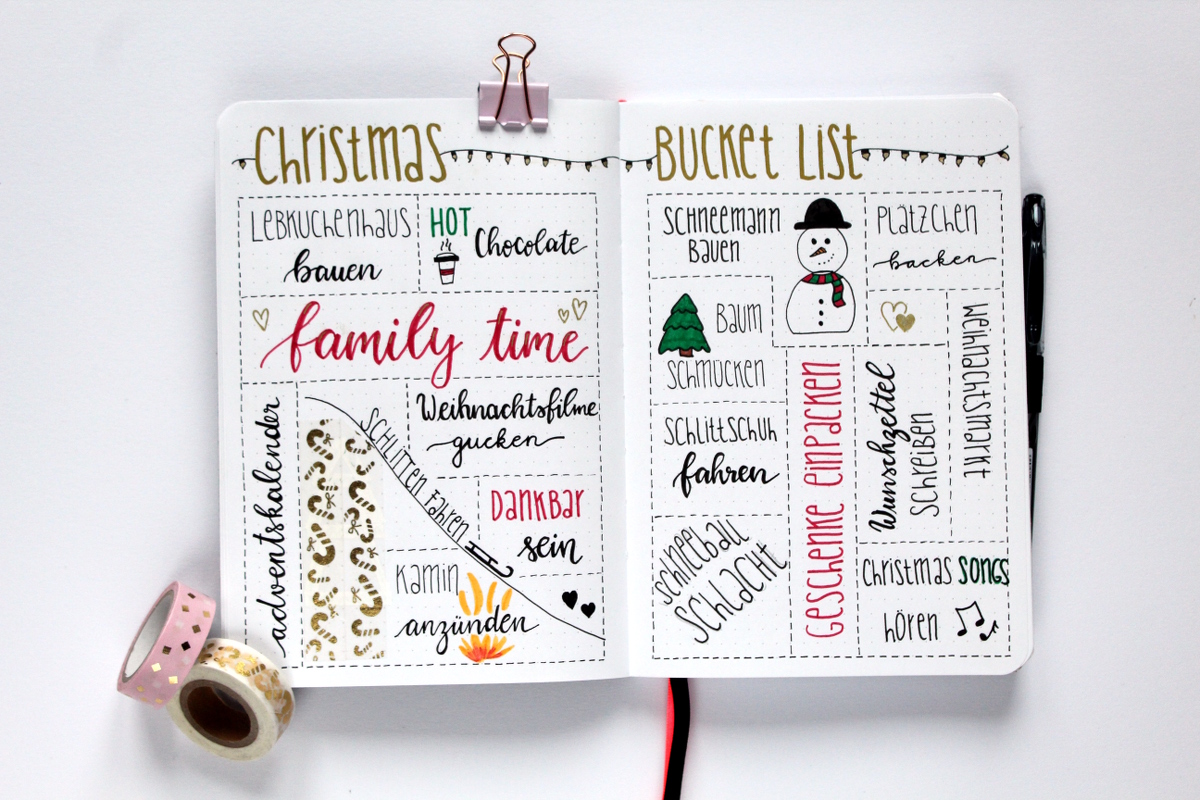 Christmas
Lebkuchenhaus
bauen
HOT
Chocolate
family time
adventskalender
Schlitten fahren
Weihnachtsfilme
gucken
Dankbar
sein
Kamin
anzünden
Bucket List
Schneemann
Bauen
Plätzchen
backen
Baum
schmücken
Schlittschuh
fahren
Schneeball
Schlacht
Geschenke einpacken
Wunschzettel
schreiben
Weihnachtsmarkt
Christmas SONGS
hören